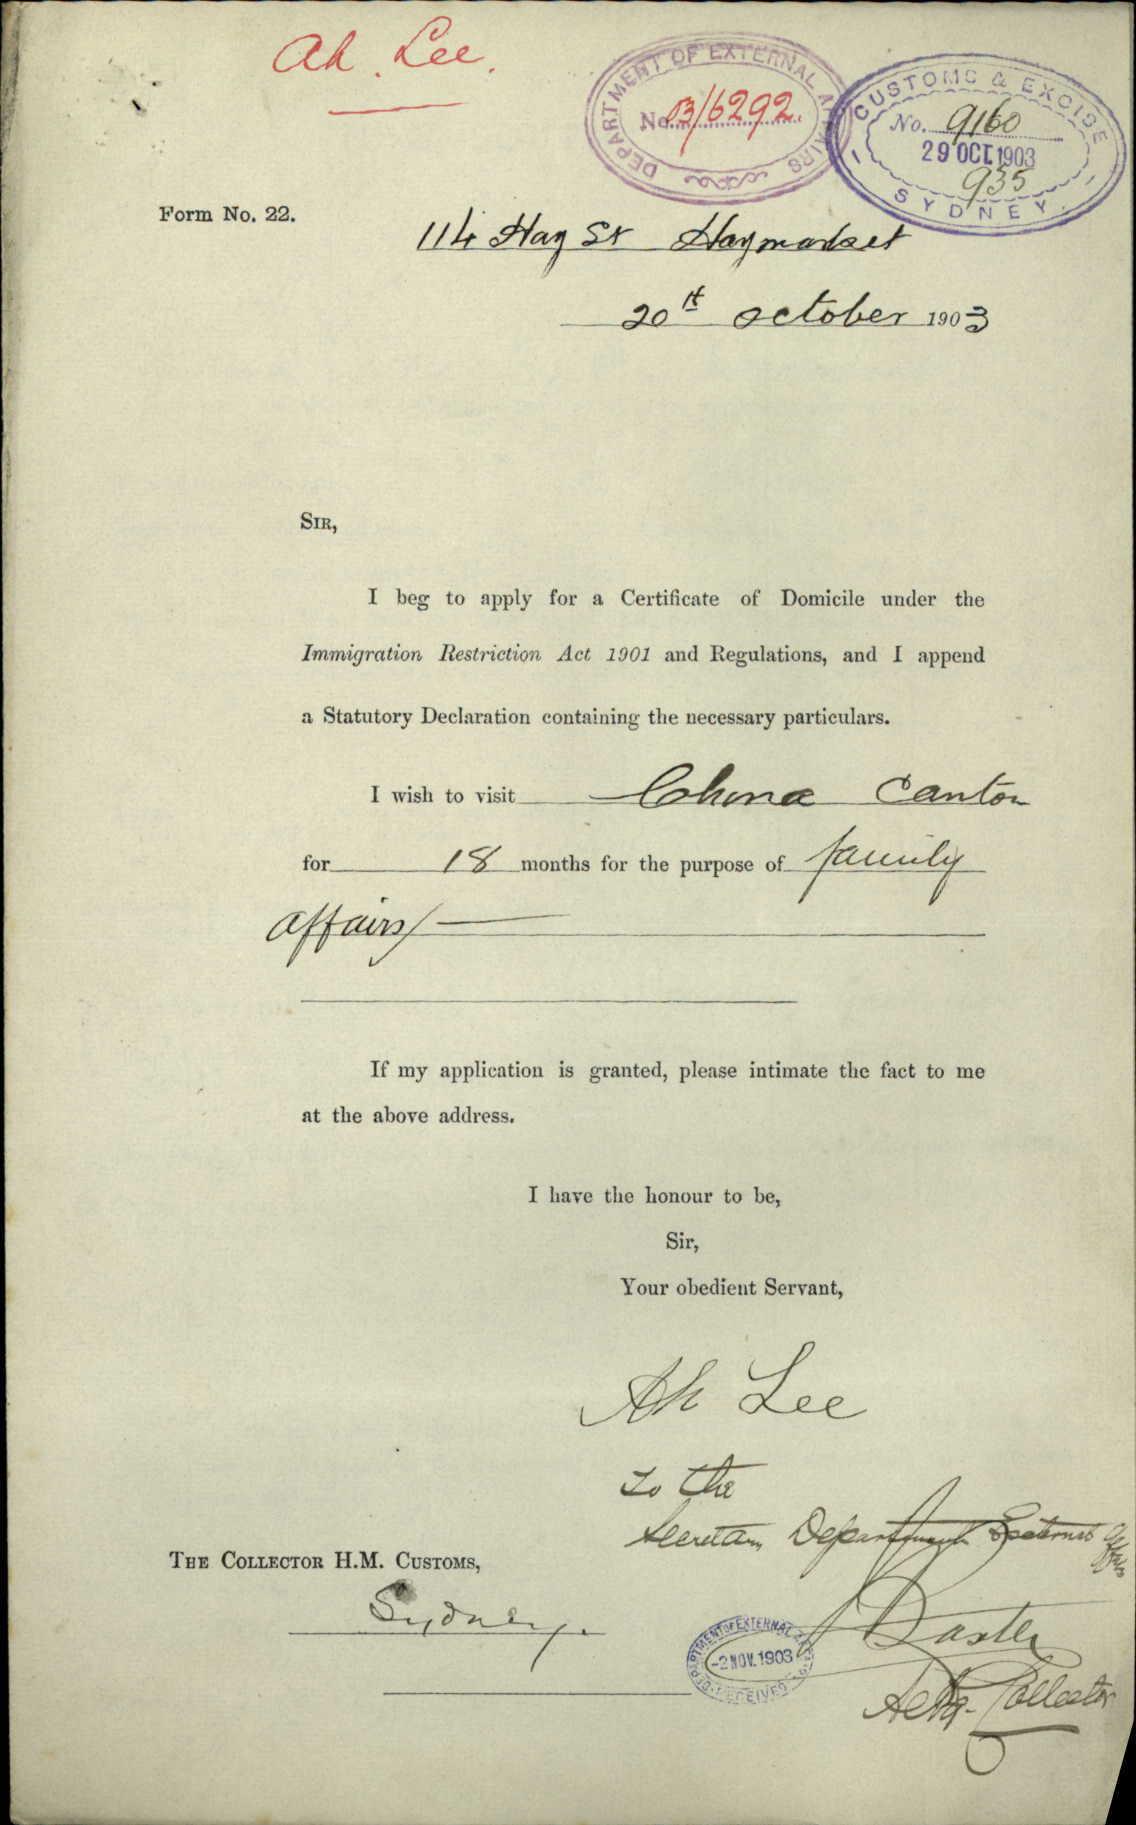 Ah. Lee.
DEPARTMENT OF EXTERNAL AFFAIRS
No. 03/6292.
CUSTOMS & EXCISE
No. 9160
29 OCT. 1903
935
SYDNEY
Form No. 22.
114 Hay St Haymarket
20th October 1903
SIR,
I beg to apply for a Certificate of Domicile under the
Immigration Restriction Act 1901 and Regulations, and I append
a Statutory Declaration containing the necessary particulars.
I wish to visit China Canton
for 18 months for the purpose of family
affairs
If my application is granted, please intimate the fact to me
at the above address.
I have the honour to be,
Sir,
Your obedient Servant,
Ah Lee
To the
Secretary Department External Affairs
THE COLLECTOR H.M. CUSTOMS,
Sydney.
DEPARTMENT OF EXTERNAL AFFAIRS
-2 NOV. 1903
RECEIVED
Baxter
Actg. Collector